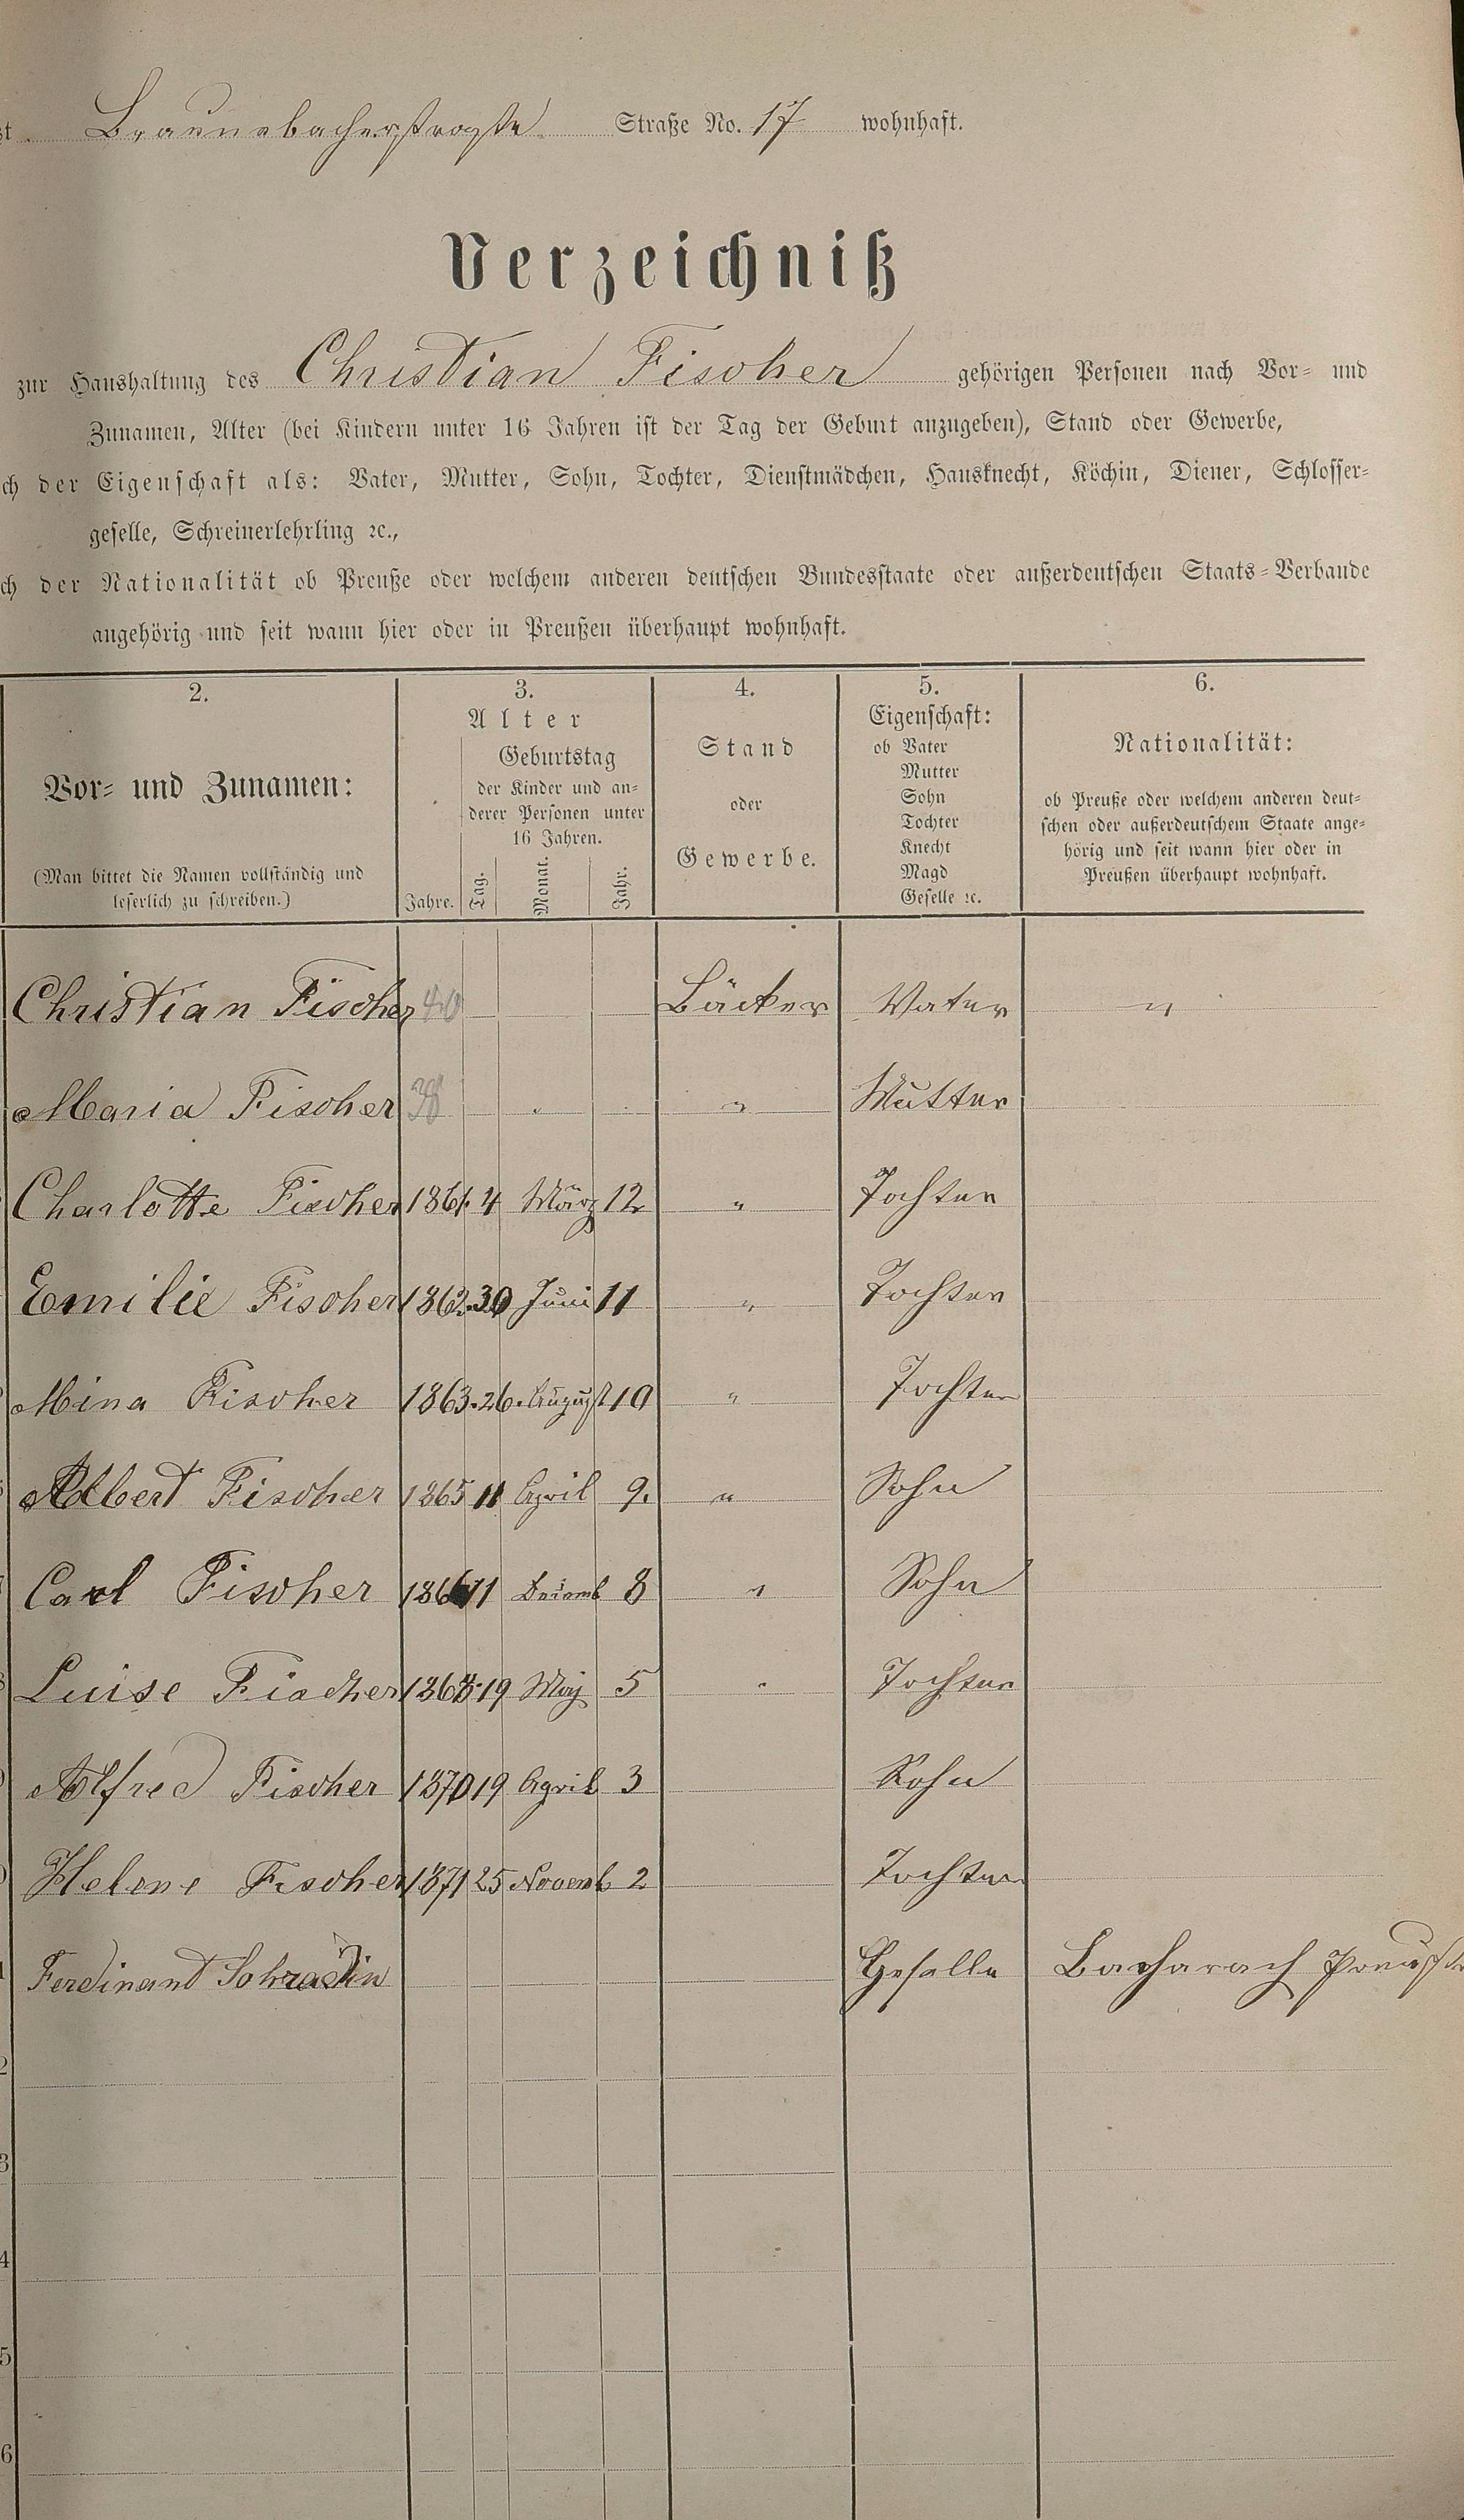 Braunebacherstraße Straße No. 17 wohnhaft.
Verzeichniß
zur Haushaltung des Christian Fischer gehörigen Personen nach Vor- und
Zunamen, Alter (bei Kindern unter 16 Jahren ist der Tag der Geburt anzugeben), Stand oder Gewerbe,
ch der Eigenschaft als: Vater, Mutter, Sohn, Tochter, Dienstmädchen, Hausknecht, Köchin, Diener, Schlosser-
geselle, Schreinerlehrling ꝛc.,
ch der Nationalität ob Preuße oder welchem anderen deutschen Bundesstaate oder außerdeutschen Staats-Verbande
angehörig und seit wann hier oder in Preußen überhaupt wohnhaft.
2.
Vor- und Zunamen:
(Man bittet die Namen vollständig und
leserlich zu schreiben.)
3.
Alter
Jahre.
Geburtstag
der Kinder und an-
derer Personen unter
16 Jahren.
Tag. Monat. Jahr.
4.
Stand
oder
Gewerbe.
5.
Eigenschaft:
ob Vater
Mutter
Sohn
Tochter
Knecht
Magd
Geselle ꝛc.
6.
Nationalität:
ob Preuße oder welchem anderen deut-
schen oder außerdeutschem Staate ange-
hörig und seit wann hier oder in
Preußen überhaupt wohnhaft.
Christian Fischer 40 Bäcker Vater "
Maria Fischer 38 " Mutter
Charlotte Fischer 1861. 4 März 12 " Tochter
Emilie Fischer 1862. 30 Juni 11 " Tochter
Mina Fischer 1863. 26. August 10 " Tochter
Albert Fischer 1865 11 April 9. " Sohn
Carl Fischer 1866 11 Decemb 8 " Sohn
Luise Fischer 1868. 19 Maj 5 " Tochter
Alfred Fischer 1870 19 April 3 Sohn
Helene Fischer 1871 25 Novemb 2 Tochter
Ferdinant Schradin Geselle Bacharach Preußen
2
3
4
5
6